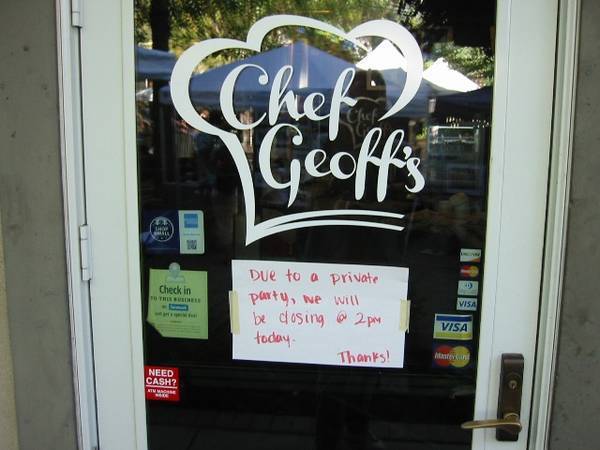 Chef
Geoff's
SHOP
SMALL
Check in
TO THIS BUSINESS
Due to a private
party, we will
be closing @ 2pm
today.
Thanks!
NEED
CASH?
ATM MACHINE
INSIDE
VISA
VISA
MasterCard